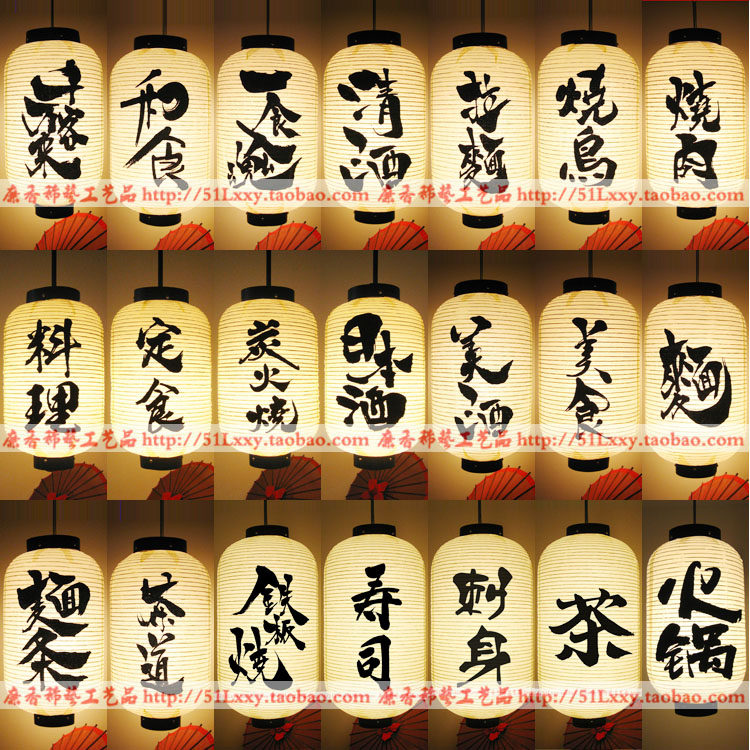 和食
清酒
拉麵
燒鳥
燒肉
工艺品 http://51Lxxy.taobao.com 工艺品 http://51Lxxy.taobao.com
料理
定食
炭火燒
日本酒
美酒
美食
麵
工艺品 http://51Lxxy.taobao.com 工艺品 http://51Lxxy.taobao.com
麵条
茶道
鉄板燒
寿司
刺身
茶
火锅
工艺品 http://51Lxxy.taobao.com 工艺品 http://51Lxxy.taobao.com